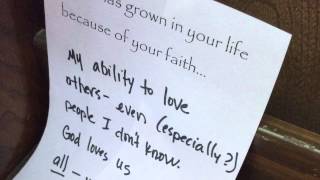 has grown in your life
because of your faith...
My ability to love
others - even (especially?)
people I don't know.
God loves us
all -